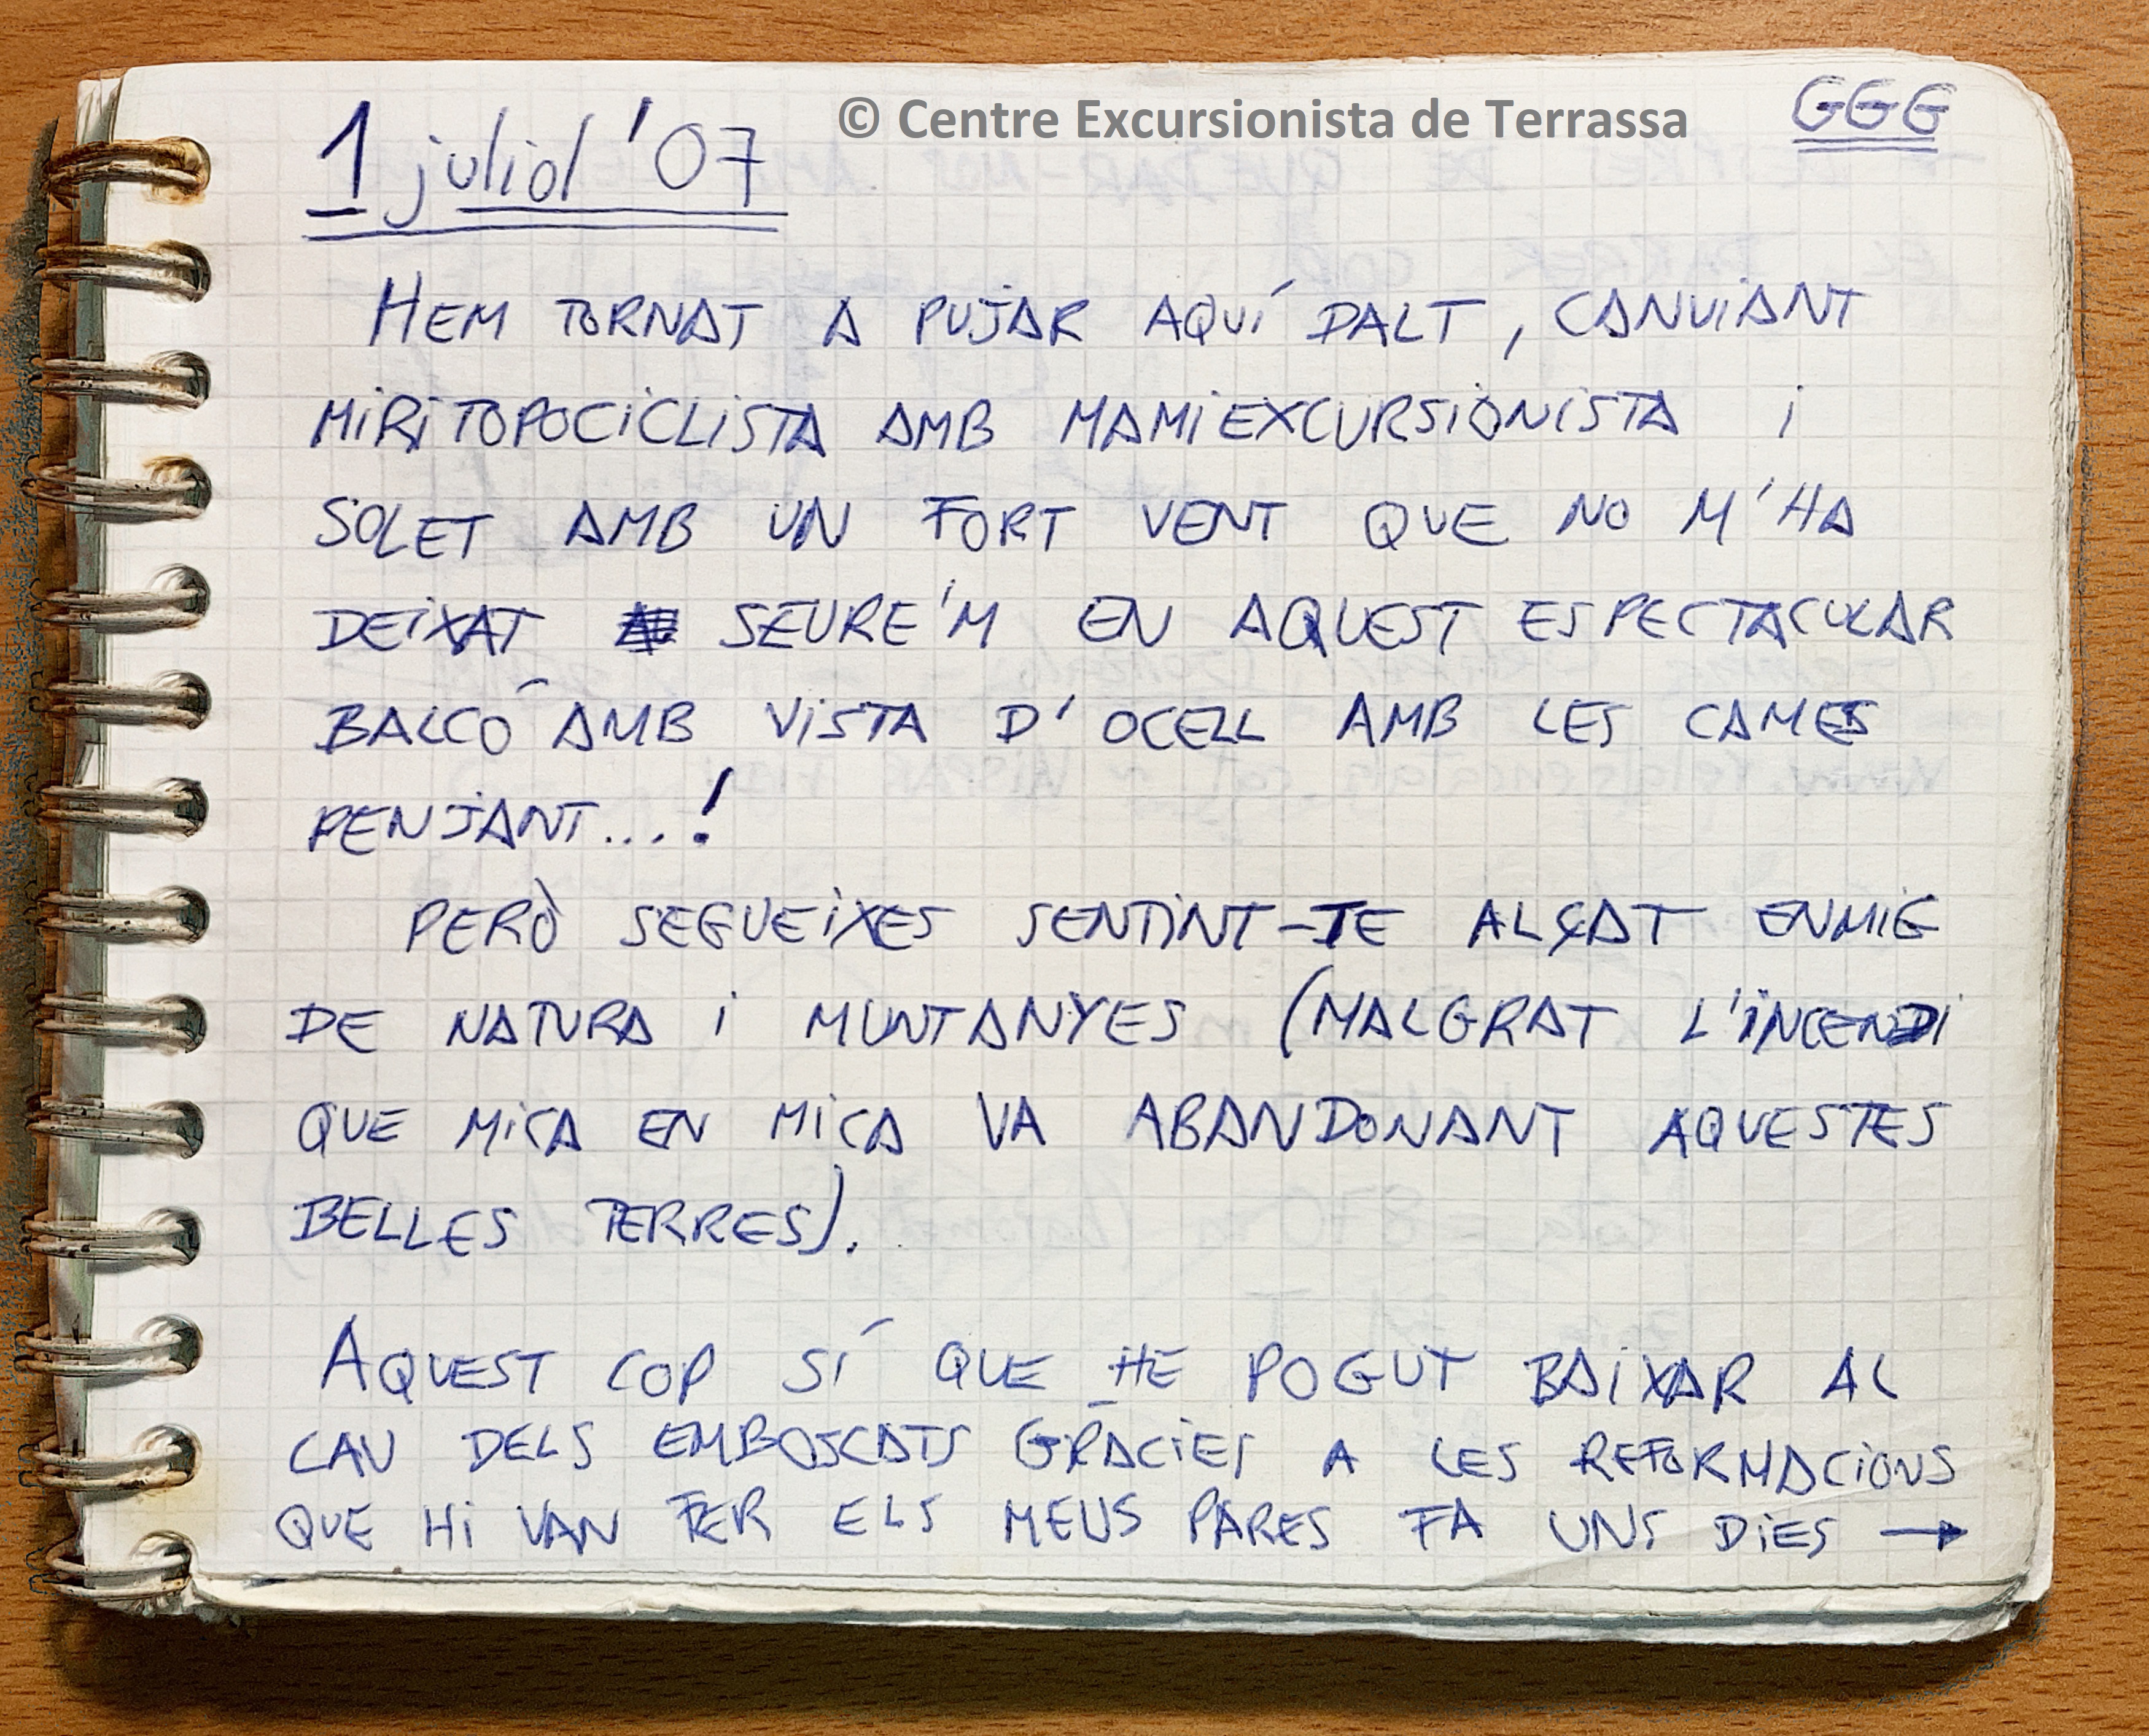 © Centre Excursionista de Terrassa
GGG
1 juliol '07
HEM TORNAT A PUJAR AQUÍ DALT, CANVIANT
MIRITOPOCICLISTA AMB MAMIEXCURSIONISTA i
SOLET AMB UN FORT VENT QUE NO M'HA
DEIXAT SEURE'M EN AQUEST ESPECTACULAR
BALCÓ AMB VISTA D'OCELL AMB LES CAMES
PENJANT...!
PERÒ SEGUEIXES SENTINT-TE ALÇAT ENMIG
DE NATURA i MUNTANYES (MALGRAT L'INCENDI
QUE MICA EN MICA VA ABANDONANT AQUESTES
BELLES TERRES).
AQUEST COP SÍ QUE HE POGUT BAIXAR AL
CAU DELS EMBOSCATS GRÀCIES A LES REFORMACIONS
QUE HI VAN FER ELS MEUS PARES FA UNS DIES →